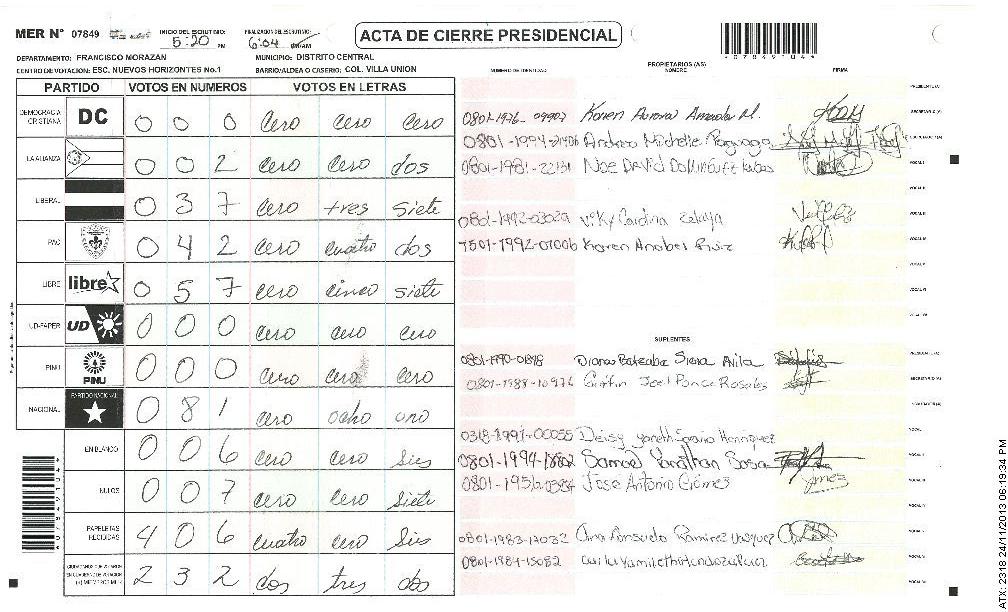 MER N° 07849 INICIO DEL ESCRUTINIO: 5:20 PM FINALIZACION DEL ESCRUTINIO: 6:04 PM/AM ACTA DE CIERRE PRESIDENCIAL
*07849104*
DEPARTAMENTO: FRANCISCO MORAZAN MUNICIPIO: DISTRITO CENTRAL
CENTRO DE VOTACION: ESC. NUEVOS HORIZONTES No.1 BARRIO/ALDEA O CASERIO: COL. VILLA UNION
NUMERO DE IDENTIDAD PROPIETARIOS (AS) NOMBRE FIRMA
PARTIDO VOTOS EN NUMEROS VOTOS EN LETRAS
DEMOCRACIA CRISTIANA DC 0 0 0 cero cero cero
LA ALIANZA 0 0 2 cero cero dos
LIBERAL 0 3 7 cero tres siete
PAC 0 4 2 cero cuatro dos
LIBRE libre 0 5 7 cero cinco siete
UD-FAPER UD 0 0 0 cero cero cero
PINU PINU 0 0 0 cero cero cero
NACIONAL PARTIDO NACIONAL 0 8 1 cero ocho uno
EN BLANCO 0 0 6 cero cero Sies
NULOS 0 0 7 cero cero siete
PAPELETAS RECIBIDAS 4 0 6 cuatro cero Sies
CIUDADANOS QUE VOTARON 2 3 2 dos tres dos
PRESIDENTE (A)
0801-1976-09907 Karen Aurora Amador M. SECRETARIO (A)
0801-1994-21406 Andrea Michelle
0801-1981-22131 Noe David VOCAL I
VOCAL II
0801-1992-03029 Viky Carolina Zelaya VOCAL III
1501-1992-01006 Karen Anabel Ruiz VOCAL IV
VOCAL V
VOCAL VI
VOCAL VII
SUPLENTES
0801-1990-01848 Diana Sierra Avila PRESIDENTE (A)
0801-1988-10976 Joel Ponce Rosales SECRETARIO (A)
ESCRUTADOR (A)
0318-1991-00055 Deisy Henriquez VOCAL I
0801-1994-18802 Samuel Jonathan Sosa VOCAL II
Jose Antonio Gómez VOCAL III
VOCAL IV
0801-1983-13032 Ana Consuelo Ramirez Vasquez VOCAL V
0801-1984-15082 VOCAL VI
VOCAL VII
ATX: 2318 24/11/2013 06:19:34 PM